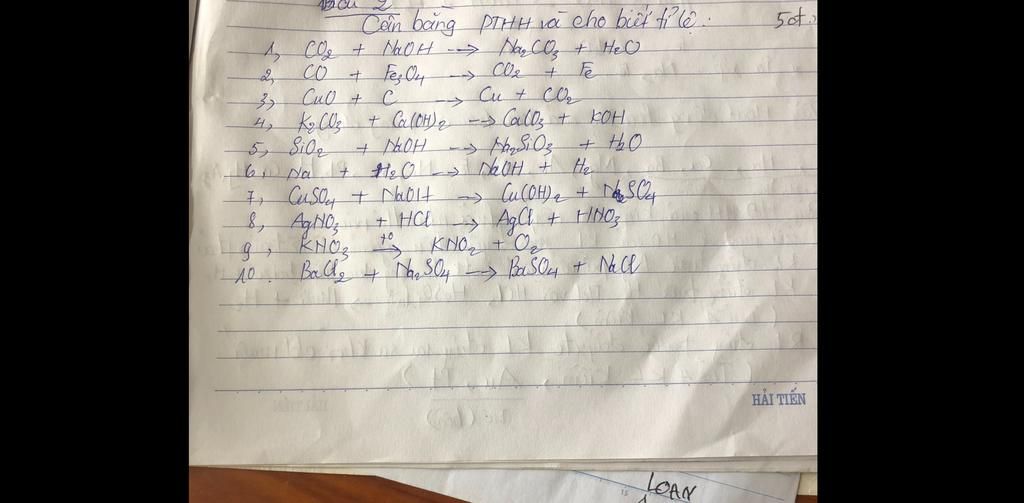 Câu 2
Cân bằng PTHH và cho biết tỉ lệ: 5đ
1, CO2 + NaOH --> Na2CO3 + H2O
2, CO + Fe3O4 --> CO2 + Fe
3, CuO + C --> Cu + CO2
4, K2CO3 + Ca(OH)2 --> CaCO3 + KOH
5, SiO2 + NaOH --> Na2SiO3 + H2O
6, Na + H2O --> NaOH + H2
7, CuSO4 + NaOH --> Cu(OH)2 + Na2SO4
8, AgNO3 + HCl --> AgCl + HNO3
9, KNO3 -t°-> KNO2 + O2
10. BaCl2 + Na2SO4 --> BaSO4 + NaCl
HẢI TIẾN
LOAN